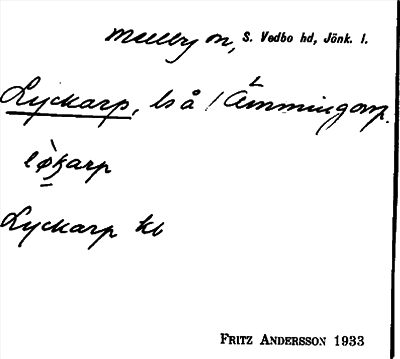 Malbäck sn, S. Vedbo hd, Jönk. l.
Lyckarp, ls å / Ämmingarp.
løkarp
Lyckarp kb
FRITZ ANDERSSON 1933